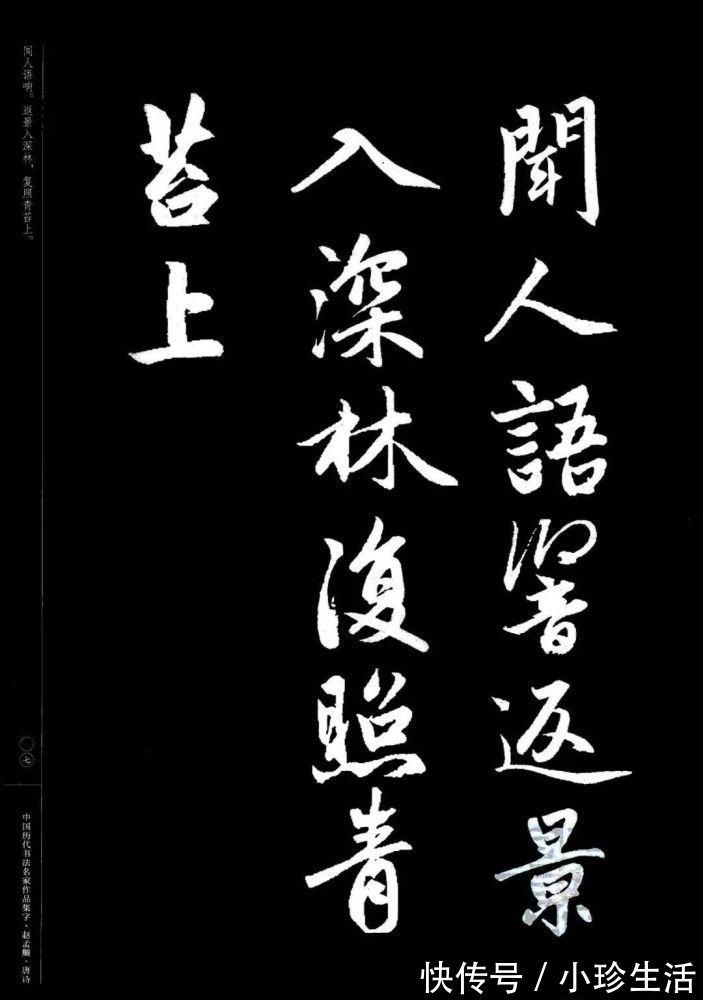 聞人語響返景
入深林復照青
苔上
闻人语响。返景入深林，复照青苔上。
〇七
中国历代书法名家作品集字·赵孟頫·唐诗
快传号 / 小珍生活